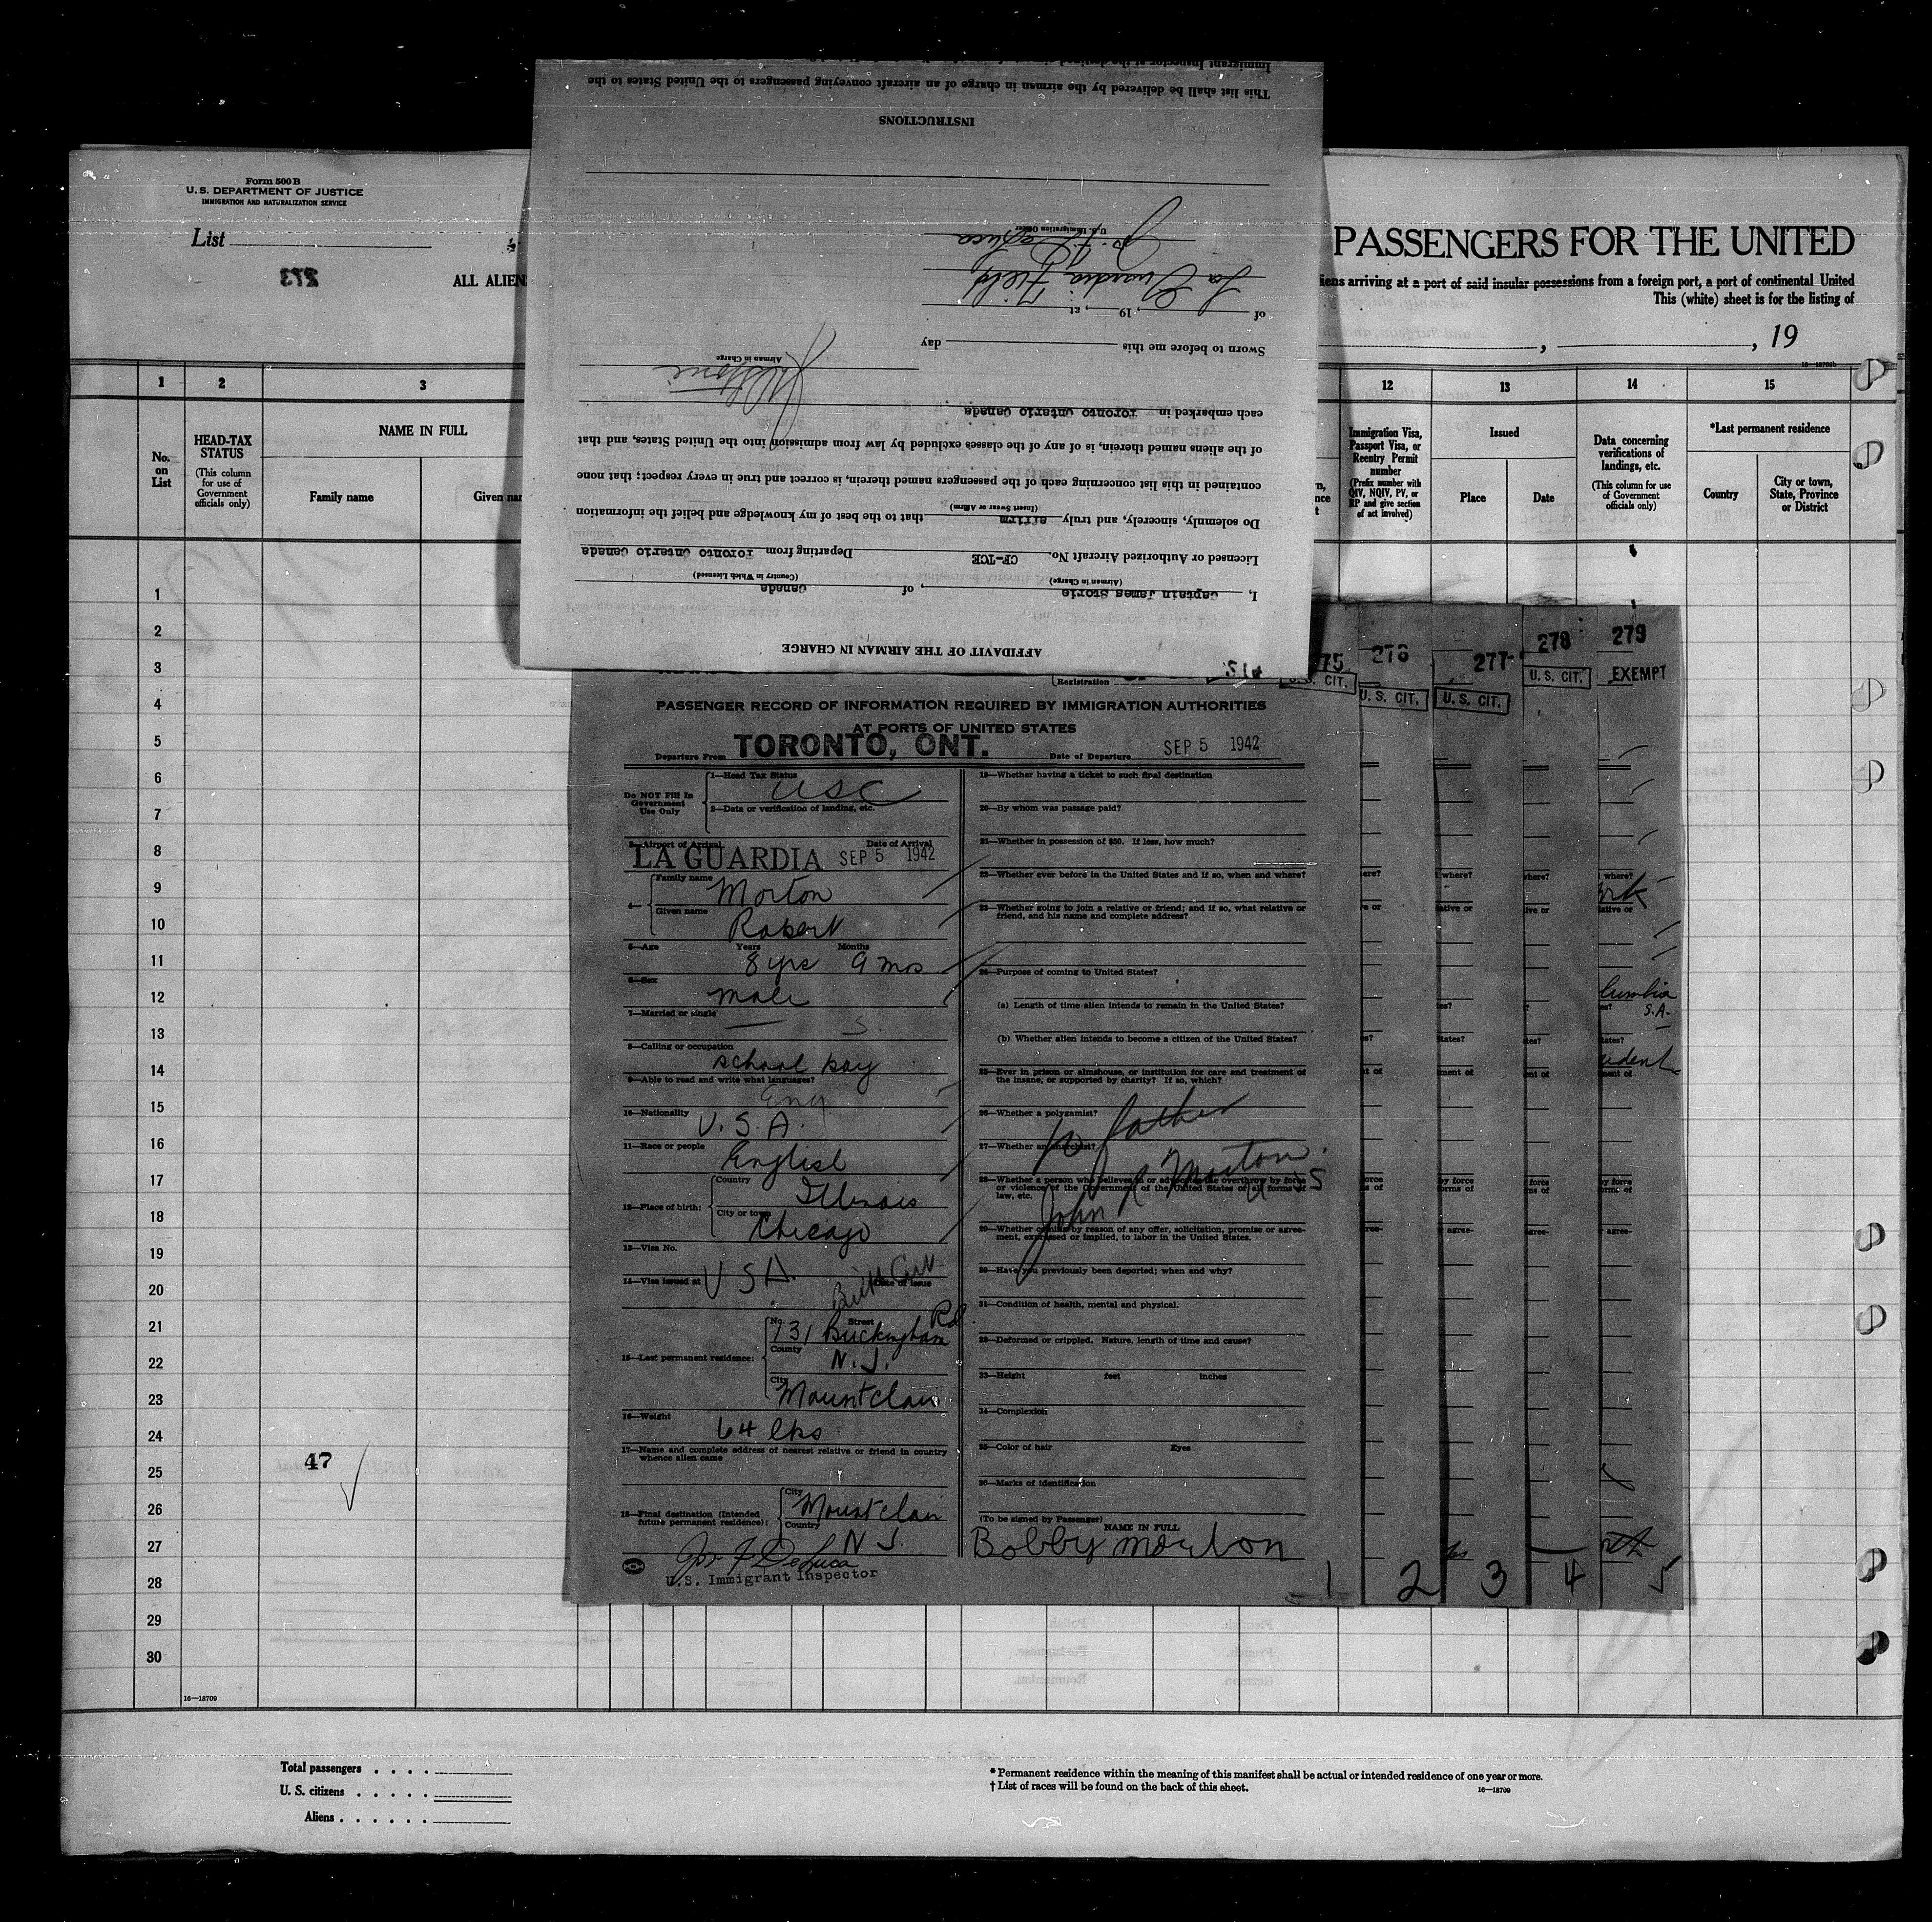 Form 500 B
U. S. DEPARTMENT OF JUSTICE
IMMIGRATION AND NATURALIZATION SERVICE
List
273
ALL ALIEN
PASSENGERS FOR THE UNITED
iens arriving at a port of said insular possessions from a foreign port, a port of continental United
This (white) sheet is for the listing of
, , 19
1 2 3 12 13 14 15
No. on List
HEAD-TAX STATUS
(This column for use of Government officials only)
NAME IN FULL
Family name
Given nam
Immigration Visa, Passport Visa, or Reentry Permit number
(Prefix number with QIV, NQIV, PV, or RP and give section of act involved)
Issued
Place
Date
Data concerning verifications of landings, etc.
(This column for use of Government officials only)
*Last permanent residence
Country
City or town, State, Province or District
1
2
3
4
5
6
7
8
9
10
11
12
13
14
15
16
17
18
19
20
21
22
23
24
25
26
27
28
29
30
47
16—18709
Total passengers . . . .
U. S. citizens . . . . .
Aliens . . . . . .
* Permanent residence within the meaning of this manifest shall be actual or intended residence of one year or more.
† List of races will be found on the back of this sheet.
16—18709
AFFIDAVIT OF THE AIRMAN IN CHARGE
I, Captain James Storie, of Canada
(Airman in Charge) (Country in Which Licensed)
Licensed or Authorized Aircraft No. CF-TCE Departing from Toronto Ontario Canada
Do solemnly, sincerely, and truly affirm that to the best of my knowledge and belief the information
(Insert Swear or Affirm)
contained in this list concerning each of the passengers named therein, is correct and true in every respect; that none
of the aliens named therein, is of any of the classes excluded by law from admission into the United States, and that
each embarked in Toronto Ontario Canada
Airman in Charge
Sworn to before me this day
of , 19 , at La Guardia Field
U. S. Immigration Officer
INSTRUCTIONS
This list shall be delivered by the airman in charge of an aircraft conveying passengers to the United States to the
Registration
PASSENGER RECORD OF INFORMATION REQUIRED BY IMMIGRATION AUTHORITIES
AT PORTS OF UNITED STATES
Departure From TORONTO, ONT. Date of Departure SEP 5 1942
Do NOT Fill In Government Use Only
1—Head Tax Status USC
2—Data or verification of landing, etc.
3—Airport of Arrival Date of Arrival
LA GUARDIA SEP 5 1942
4— Family name Morton
Given name Robert
5—Age Years Months
8 yrs 9 mos
6—Sex
male
7—Married or single S.
8—Calling or occupation
school boy
9—Able to read and write what languages?
Eng
10—Nationality
U. S. A.
11—Race or people
English
12—Place of birth: Country Illinois
City or town Chicago
13—Visa No.
14—Visa issued at U S A. Date of issue
15—Last permanent residence: No. Street
731 Buckingham Rd
County
N. J.
City
Mountclair
16—Weight
64 lbs
17—Name and complete address of nearest relative or friend in country
whence alien came
18—Final destination (Intended future permanent residence): City Mountclair
Country N J.
Jos F DeLuca
U.S. Immigrant Inspector
19—Whether having a ticket to such final destination
20—By whom was passage paid?
21—Whether in possession of $50. If less, how much?
22—Whether ever before in the United States and if so, when and where?
23—Whether going to join a relative or friend; and if so, what relative or
friend, and his name and complete address?
24—Purpose of coming to United States?
(a) Length of time alien intends to remain in the United States?
(b) Whether alien intends to become a citizen of the United States?
25—Ever in prison or almshouse, or institution for care and treatment of
the insane, or supported by charity? If so, which?
26—Whether a polygamist?
to father
27—Whether an anarchist?
John R Morton.
U S
28—Whether a person who believes in or advocates the overthrow by force
or violence of the Government of the United States or all forms of
law, etc.
29—Whether coming by reason of any offer, solicitation, promise or agree-
ment, expressed or implied, to labor in the United States.
30—Have you previously been deported; when and why?
31—Condition of health, mental and physical.
32—Deformed or crippled. Nature, length of time and cause?
33—Height feet inches
34—Complexion
35—Color of hair Eyes
36—Marks of identification
(To be signed by Passenger)
NAME IN FULL
Bobby morton
75 276 277 278 279
U. S. CIT.
U. S. CIT.
U. S. CIT.
EXEMPT
1 2 3 4 5